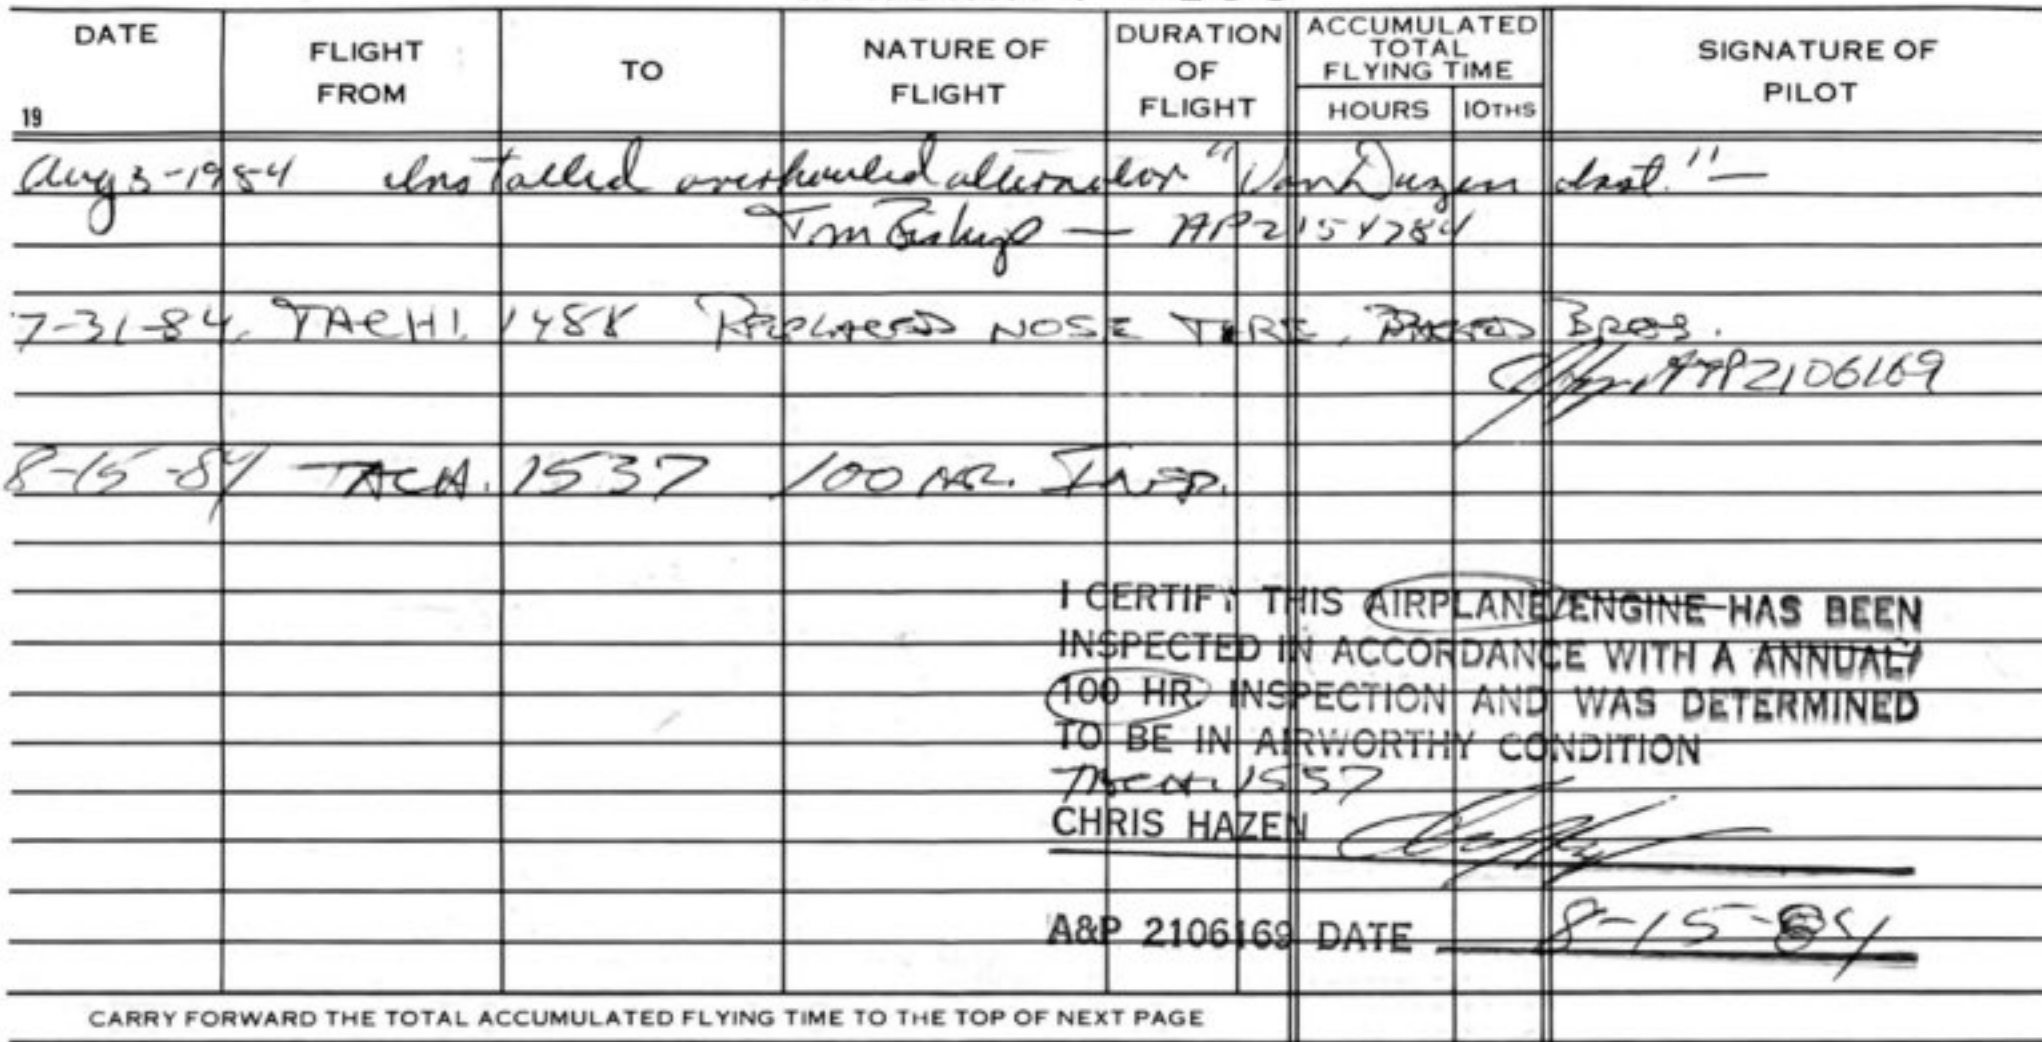 DATE FLIGHT FROM TO NATURE OF FLIGHT DURATION OF FLIGHT ACCUMULATED TOTAL FLYING TIME SIGNATURE OF PILOT
19 HOURS 10THS
Aug 3-1984 Installed overhauled alternator "Van Duzen Inst."—
Tom — AP2154784
7-31-84. TACH! 1488 REPLACED NOSE TIRE, BROS.
A&P2106169
8-15-84 TACH. 1537 100 HR. INSP.
I CERTIFY THIS AIRPLANE/ENGINE HAS BEEN
INSPECTED IN ACCORDANCE WITH A ANNUAL/
100 HR. INSPECTION AND WAS DETERMINED
TO BE IN AIRWORTHY CONDITION
TACH. 1537
CHRIS HAZEN
A&P 2106169 DATE 8-15-84
CARRY FORWARD THE TOTAL ACCUMULATED FLYING TIME TO THE TOP OF NEXT PAGE